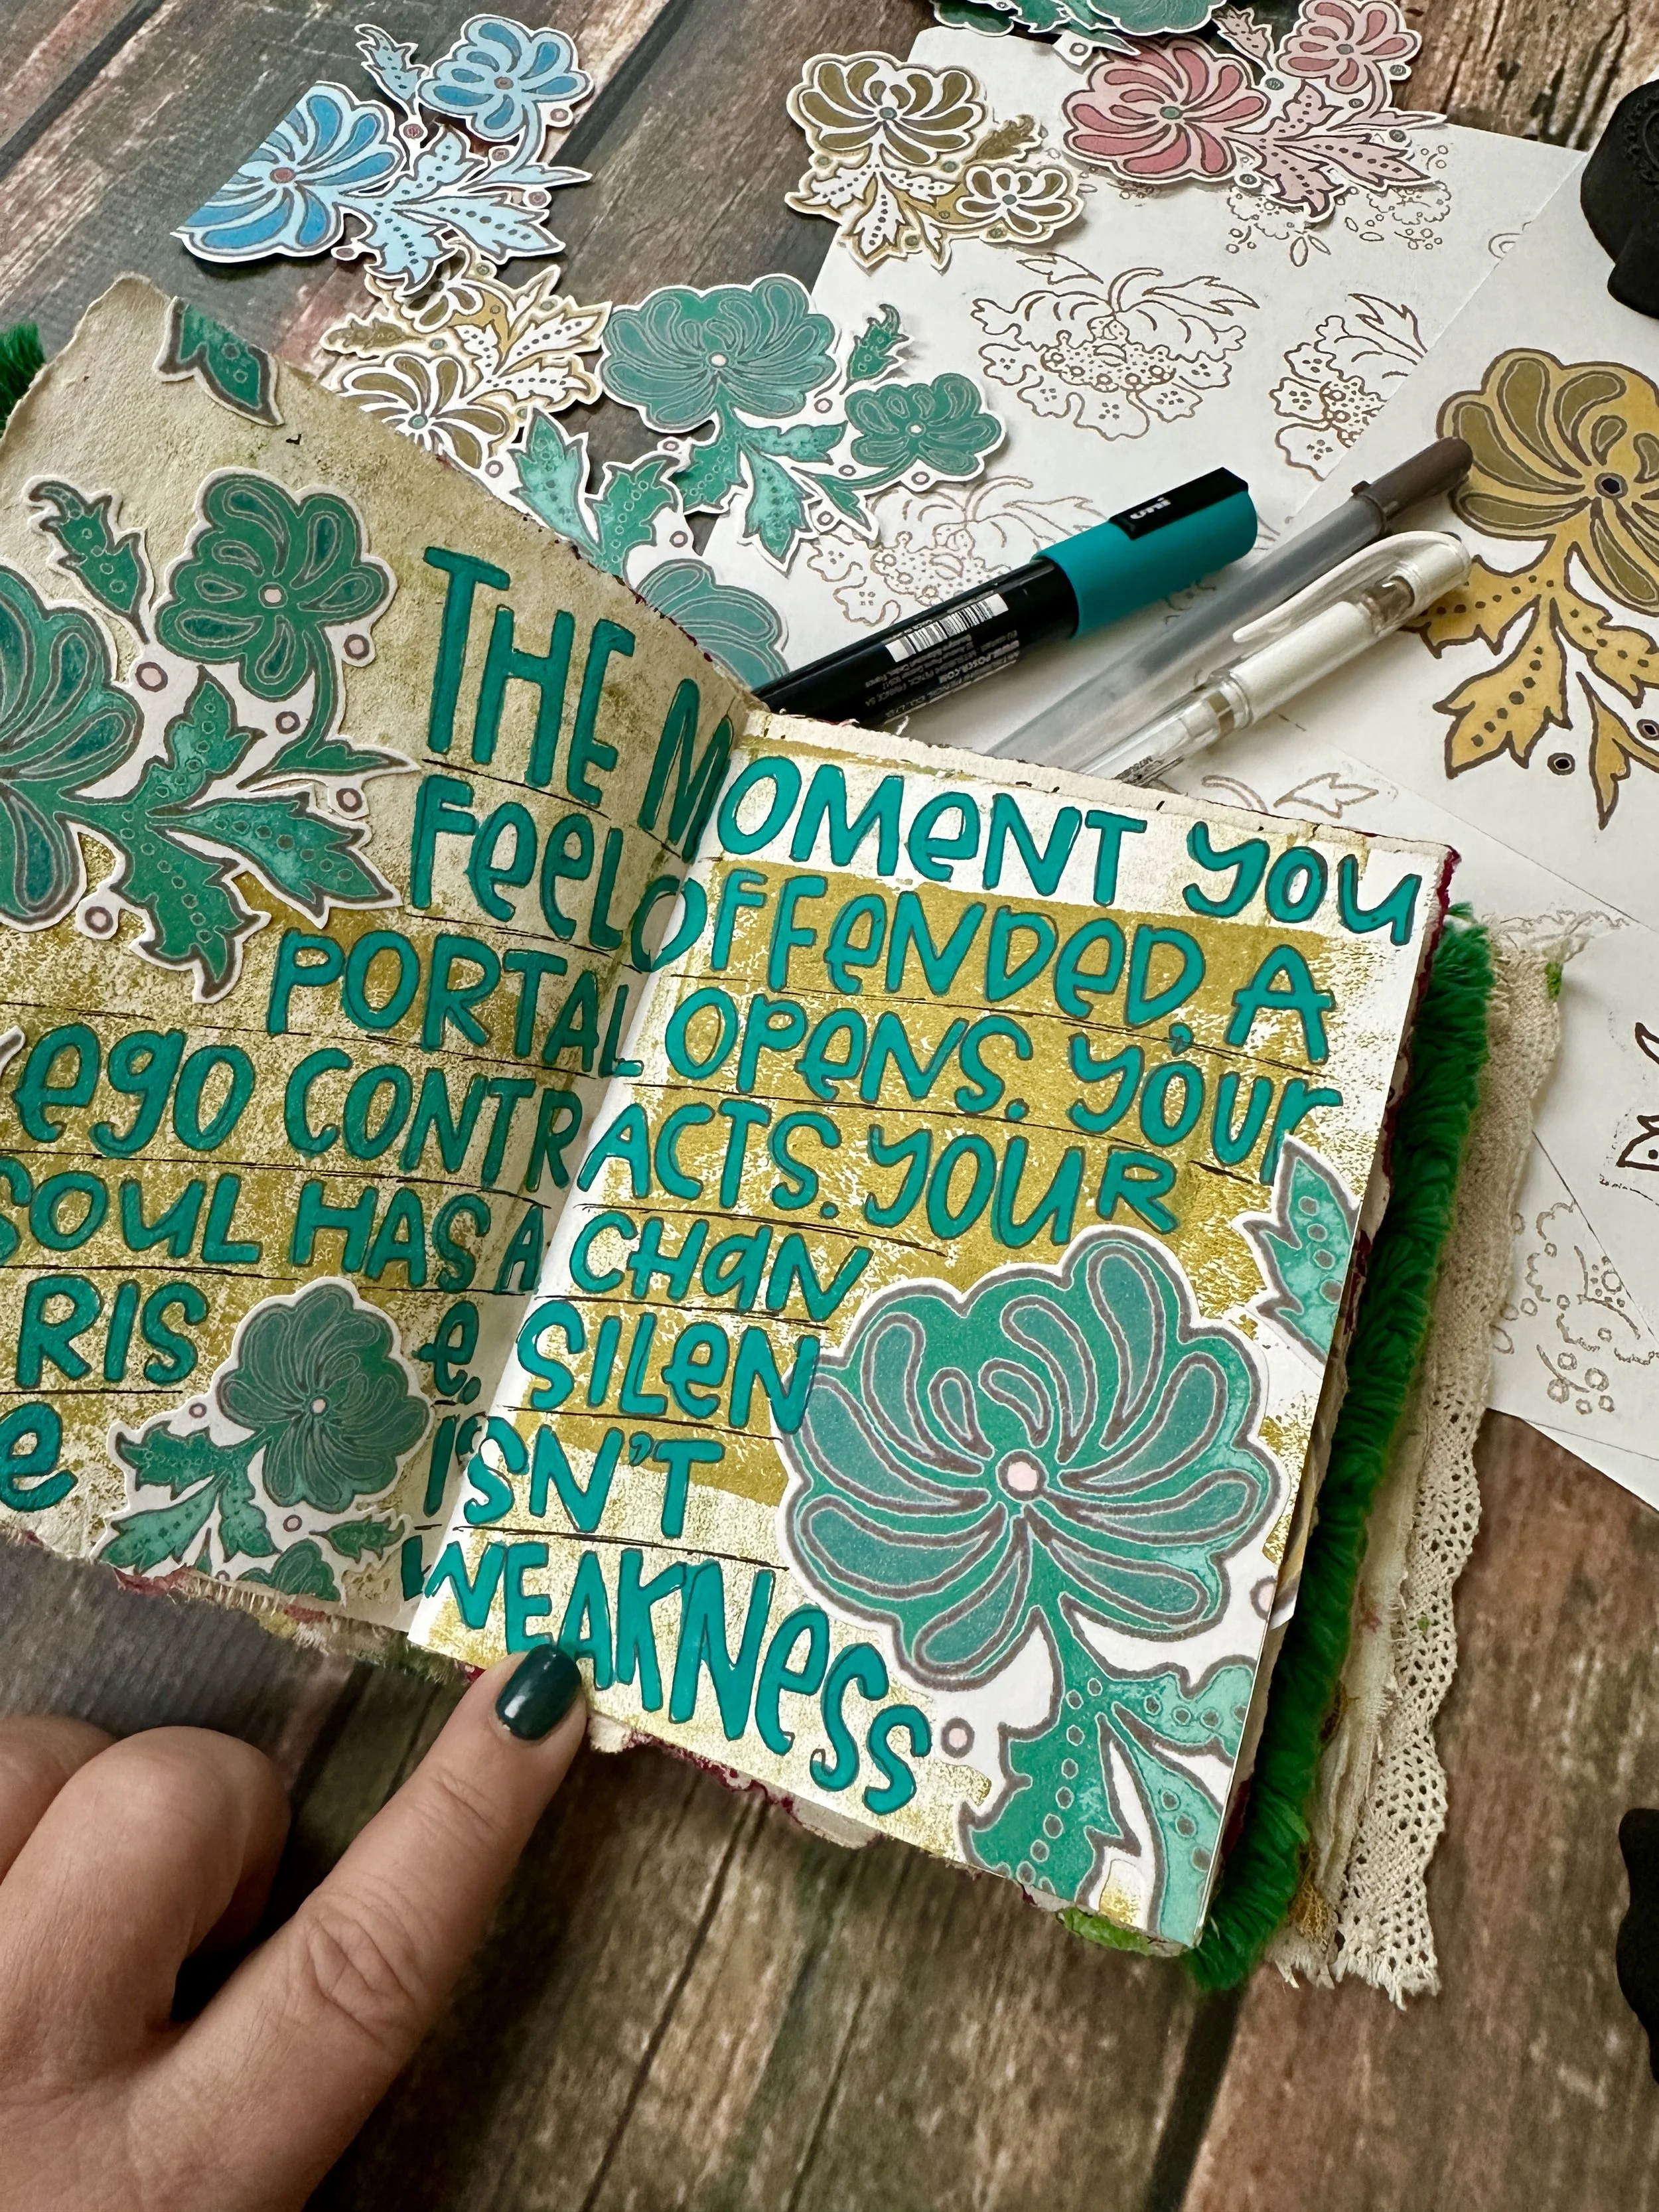 THE MOMENT YOU
FEEL OFFENDED, A
PORTAL OPENS. YOUR
EGO CONTRACTS. YOUR
SOUL HAS A CHAN
RIS e. SILEN
e ISN'T
WEAKNESS
uni